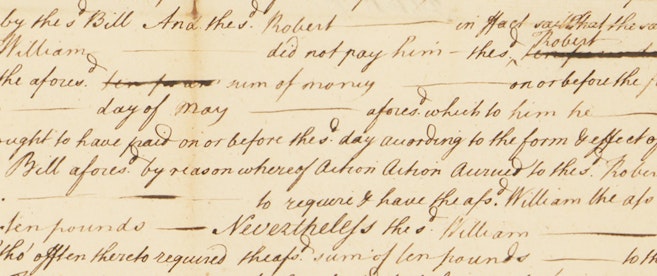 by the sd Bill And the sd Robert in ffact saith that the sa
William did not pay him the sd Robert
the aforesd ten pounds sum of money on or before the
day of May aforesd which to him he
ought to have paid on or before the sd day according to the form & effect of
Bill aforesd by reason whereof Action Action accrued to the sd Rober
to require & have the afsd William the afs
ten pounds Nevertheless the sd William
tho' often thereto required the afsd sum of ten pounds to th